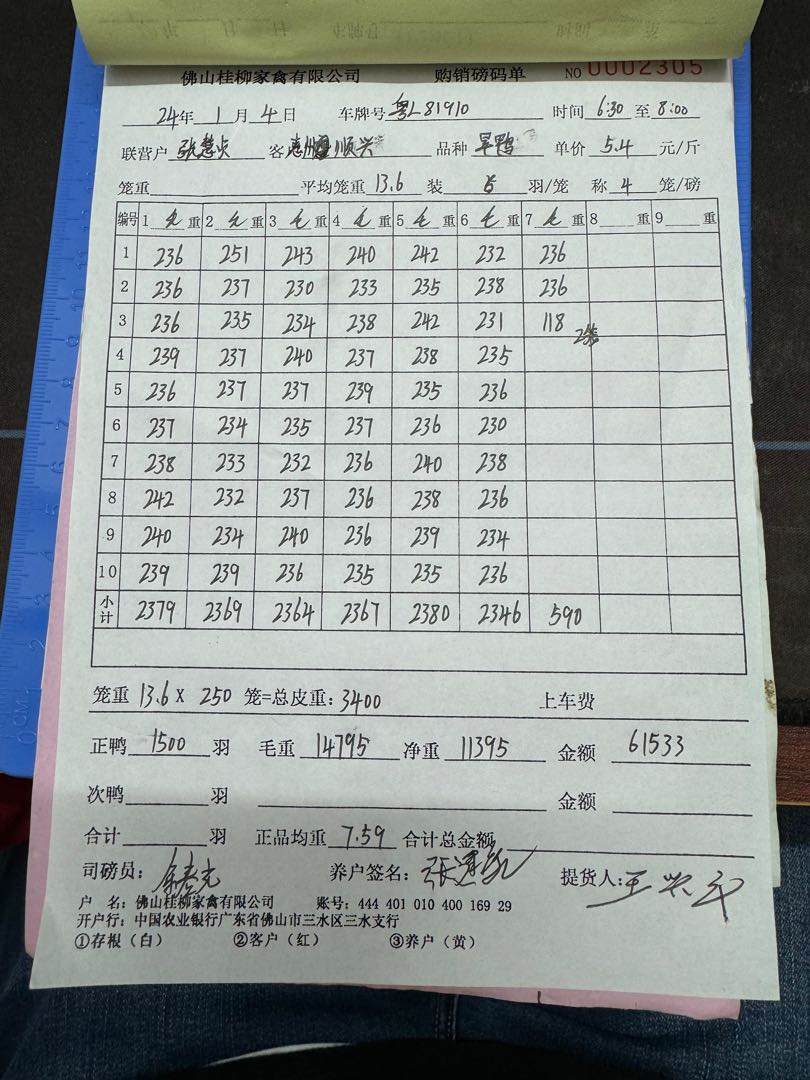 佛山桂柳家禽有限公司 购销磅码单 NO 0002305
24年 1月 4日 车牌号 粤L81910 时间 6:30 至 8:00
联营户 张慧贞 客 顺兴 品种 旱鸭 单价 5.4 元/斤
笼重 平均笼重 13.6 装 羽/笼 称 4 笼/磅
编号 1 毛 重 2 毛 重 3 毛 重 4 毛 重 5 毛 重 6 毛 重 7 毛 重 8 重 9 重
1 236 251 243 240 242 232 236
2 236 237 230 233 235 238 236
3 236 235 234 238 242 231 118 2笼
4 239 237 240 237 238 235
5 236 237 237 239 235 236
6 237 234 235 237 236 230
7 238 233 232 236 240 238
8 242 232 237 236 238 236
9 240 234 240 236 239 234
10 239 239 236 235 235 236
小计 2379 2369 2364 2367 2380 2346 590
笼重 13.6 X 250 笼=总皮重: 3400 上车费
正鸭 1500 羽 毛重 14795 净重 11395 金额 61533
次鸭 羽 金额
合计 羽 正品均重 7.59 合计总金额
司磅员: 养户签名: 提货人:
户 名: 佛山桂柳家禽有限公司 账号: 444 401 010 400 169 29
开户行: 中国农业银行广东省佛山市三水区三水支行
①存根（白） ②客户（红） ③养户（黄）